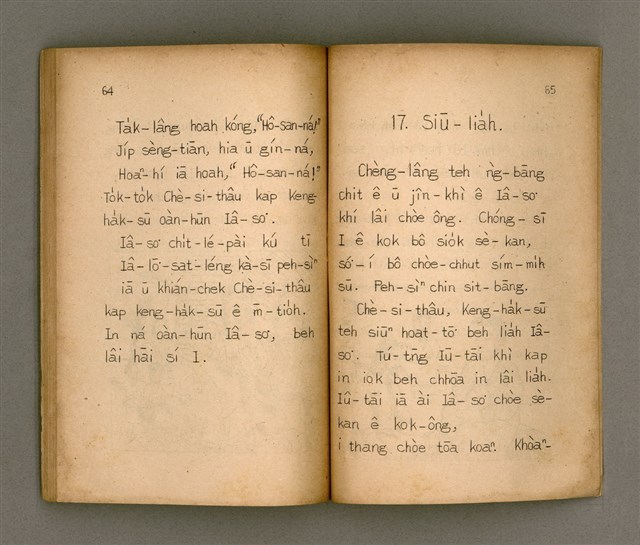 64
Ta̍k-lâng hoah kóng, "Hô-san-ná!"
Ji̍p sèng-tiān, hia ū gín-ná,
Hoaⁿ-hí iā hoah, "Hô-san-ná!"
To̍k-to̍k Chè-si-thâu kap Keng-
ha̍k-sū oàn-hūn Iâ-so͘.
Iâ-so͘ chi̍t-lé-pài kú tī
Iâ-lō͘-sat-léng kà-sī peh-sìⁿ
iā ū khián-chek Chè-si-thâu
kap keng-ha̍k-sū ê m̄-tio̍h.
In ná oàn-hūn Iâ-so͘, beh
lâi hāi sí I.
65
17. Siū-lia̍h.
Chèng-lâng teh ǹg-bāng
chit ê ū jîn-khì ê Iâ-so͘
khí lâi chòe ông. Chóng-sī
I ê kok bô sio̍k sè-kan,
só͘-í bô chòe-chhut sím-mi̍h
sū. Peh-sìⁿ chin sit-bāng.
Chè-si-thâu, Keng-ha̍k-sū
teh siūⁿ hoat-tō͘ beh lia̍h Iâ-
so͘. Tú-tn̄g Iū-tāi khì kap
in iok beh chhōa in lâi lia̍h.
Iû-tāi iā ài Iâ-so͘ chòe sè-
kan ê kok-ông,
i thang chòe tōa koaⁿ. Khòaⁿ-